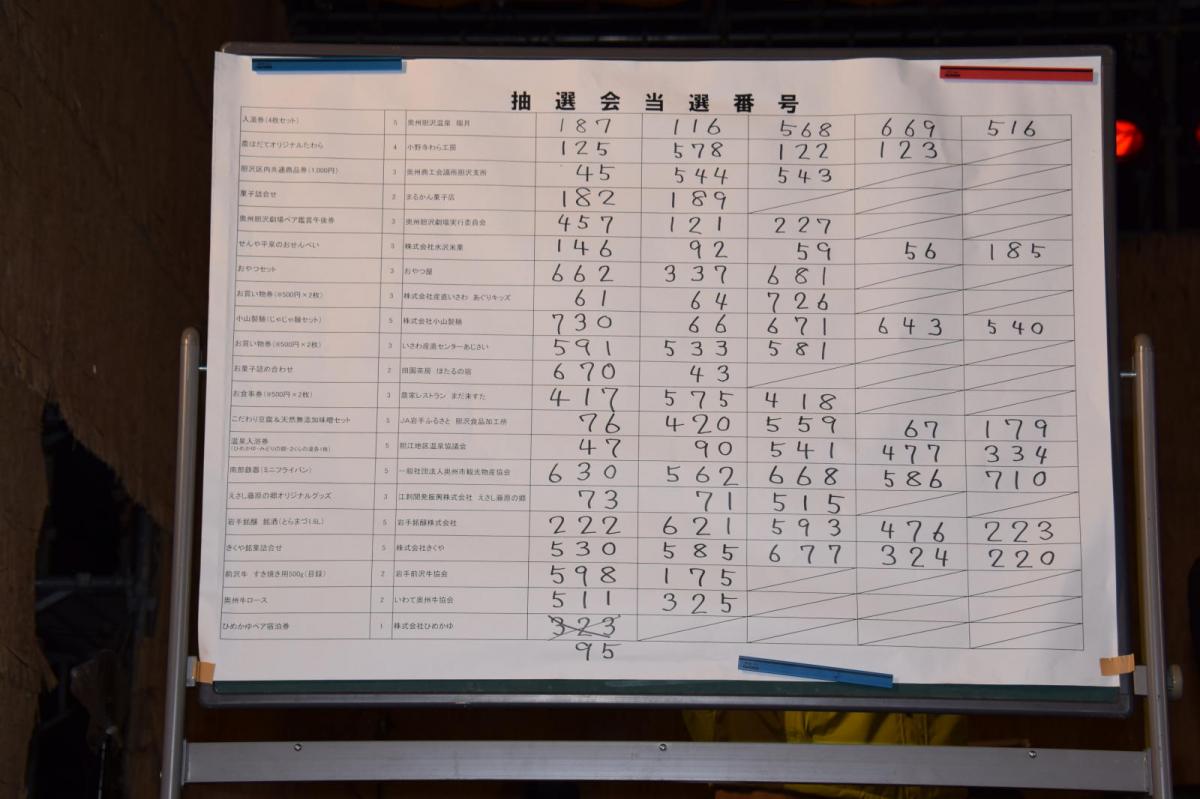 抽選会当選番号
入湯券(4枚セット) 5 奥州胆沢温泉 187 116 568 669 516
農はだてオリジナルたわら 4 小野寺わら工房 125 578 122 123
胆沢区内共通商品券(1,000円) 3 奥州商工会議所胆沢支所 45 544 543
菓子詰合せ 2 まるかん菓子店 182 189
奥州胆沢劇場ペア鑑賞午後券 3 奥州胆沢劇場実行委員会 457 121 227
せんや平泉のおせんべい 5 株式会社水沢米菓 146 92 59 56 185
おやつセット 3 おやつ屋 662 337 681
お買い物券(※500円×2枚) 3 株式会社産直いさわ あぐりキッズ 61 64 726
小山製麺(じゃじゃ麺セット) 5 株式会社小山製麺 730 66 671 643 540
お買い物券(※500円×2枚) 3 いさわ産直センターあじさい 591 533 581
お菓子詰め合わせ 2 田園茶房 ほたるの宿 670 43
お食事券(※500円×2枚) 3 農家レストラン まだ来すた 417 575 418
こだわり豆腐&天然無添加味噌セット 5 JA岩手ふるさと 胆沢食品加工所 76 420 559 67 179
温泉入浴券 5 胆江地区温泉協議会 47 90 541 477 334
(ひめかゆ・みどりの郷・さくらの湯各1枚)
南部鉄器(ミニフライパン) 5 一般社団法人奥州市観光物産協会 630 562 668 586 710
えさし藤原の郷オリジナルグッズ 3 江刺開発振興株式会社 えさし藤原の郷 73 71 515
岩手銘醸 銘酒(とらまづ1.8L) 5 岩手銘醸株式会社 222 621 593 476 223
きくや銘菓詰合せ 5 株式会社きくや 530 585 677 324 220
前沢牛 すき焼き用500g(目録) 2 岩手前沢牛協会 598 175
奥州牛ロース 2 いわて奥州牛協会 511 325
ひめかゆペア宿泊券 1 株式会社ひめかゆ 323
95